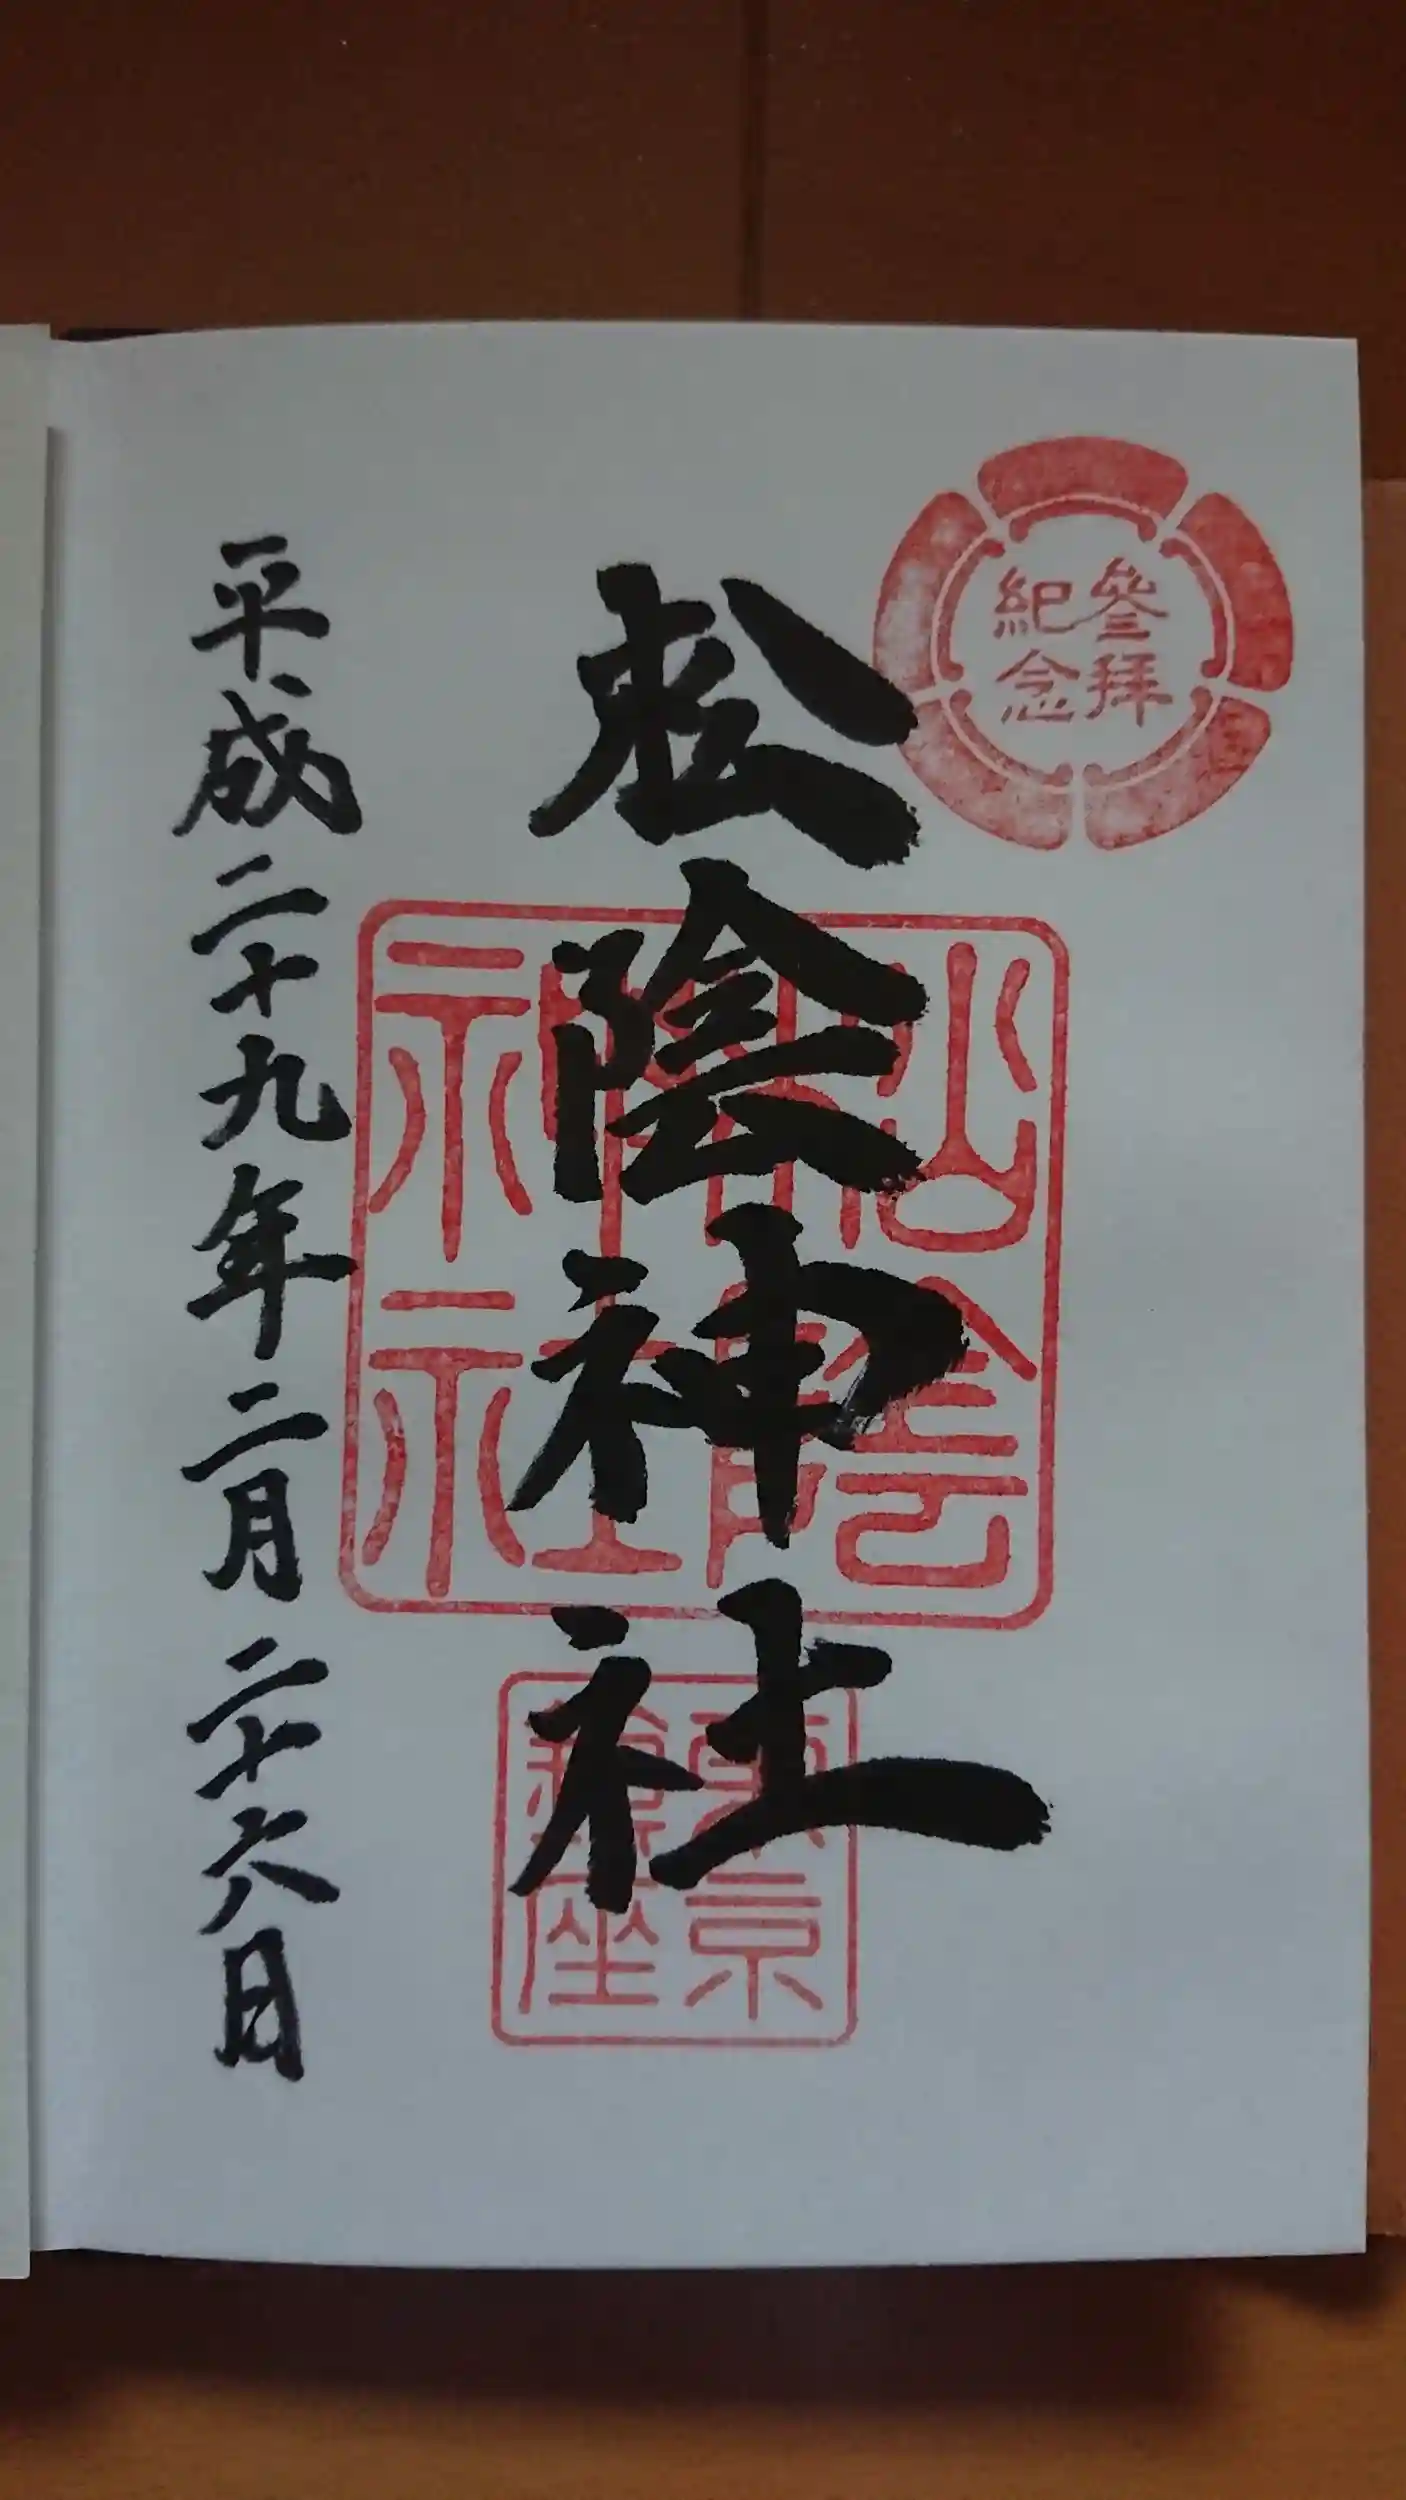 參拜
紀念
松陰神社
松陰
神社
東京
鎮座
平成二十九年二月二十六日